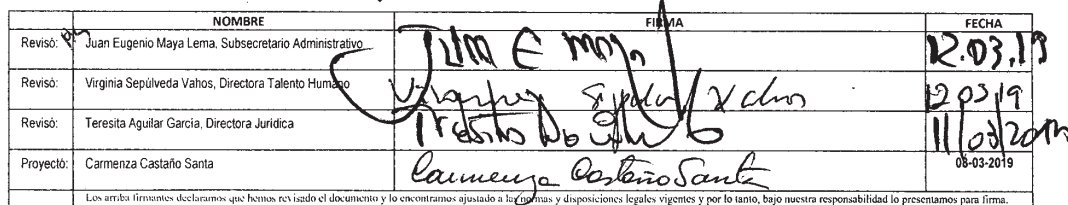 NOMBRE FIRMA FECHA
Revisó: Juan Eugenio Maya Lema, Subsecretario Administrativo Juan E Maya 12.03.19
Revisó: Virginia Sepúlveda Vahos, Directora Talento Humano 12 03 19
Revisó: Teresita Aguilar García, Directora Jurídica 11/03/2019
Proyectó: Carmenza Castaño Santa Carmenza Castaño Santa 08-03-2019
Los arriba firmantes declaramos que hemos revisado el documento y lo encontramos ajustado a las normas y disposiciones legales vigentes y por lo tanto, bajo nuestra responsabilidad lo presentamos para firma.